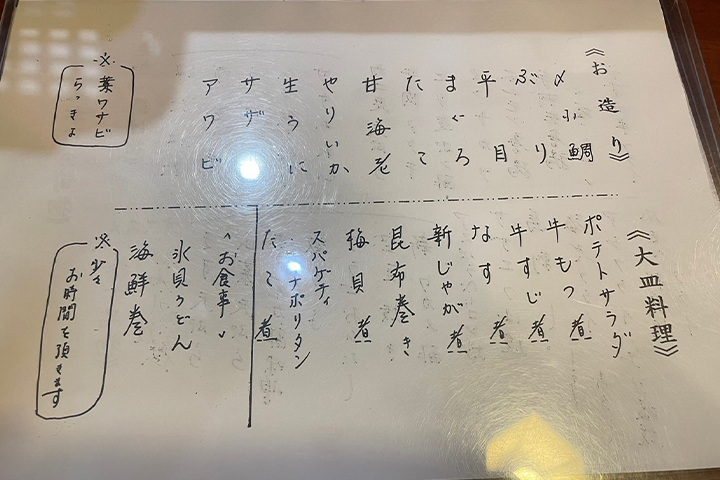 《お造り》
〆小鯛
ぶり
平目
まぐろ
たこ
甘海老
やりいか
生うに
サザ
アワビ
※葉ワサビ
らっきょ
《大皿料理》
ポテトサラダ
牛もつ煮
牛すじ煮
なす煮
新じゃが煮
昆布巻き
梅貝煮
スパゲティ
ナポリタン
たこ煮
<お食事>
氷見うどん
海鮮巻
※少々
お時間を頂きます